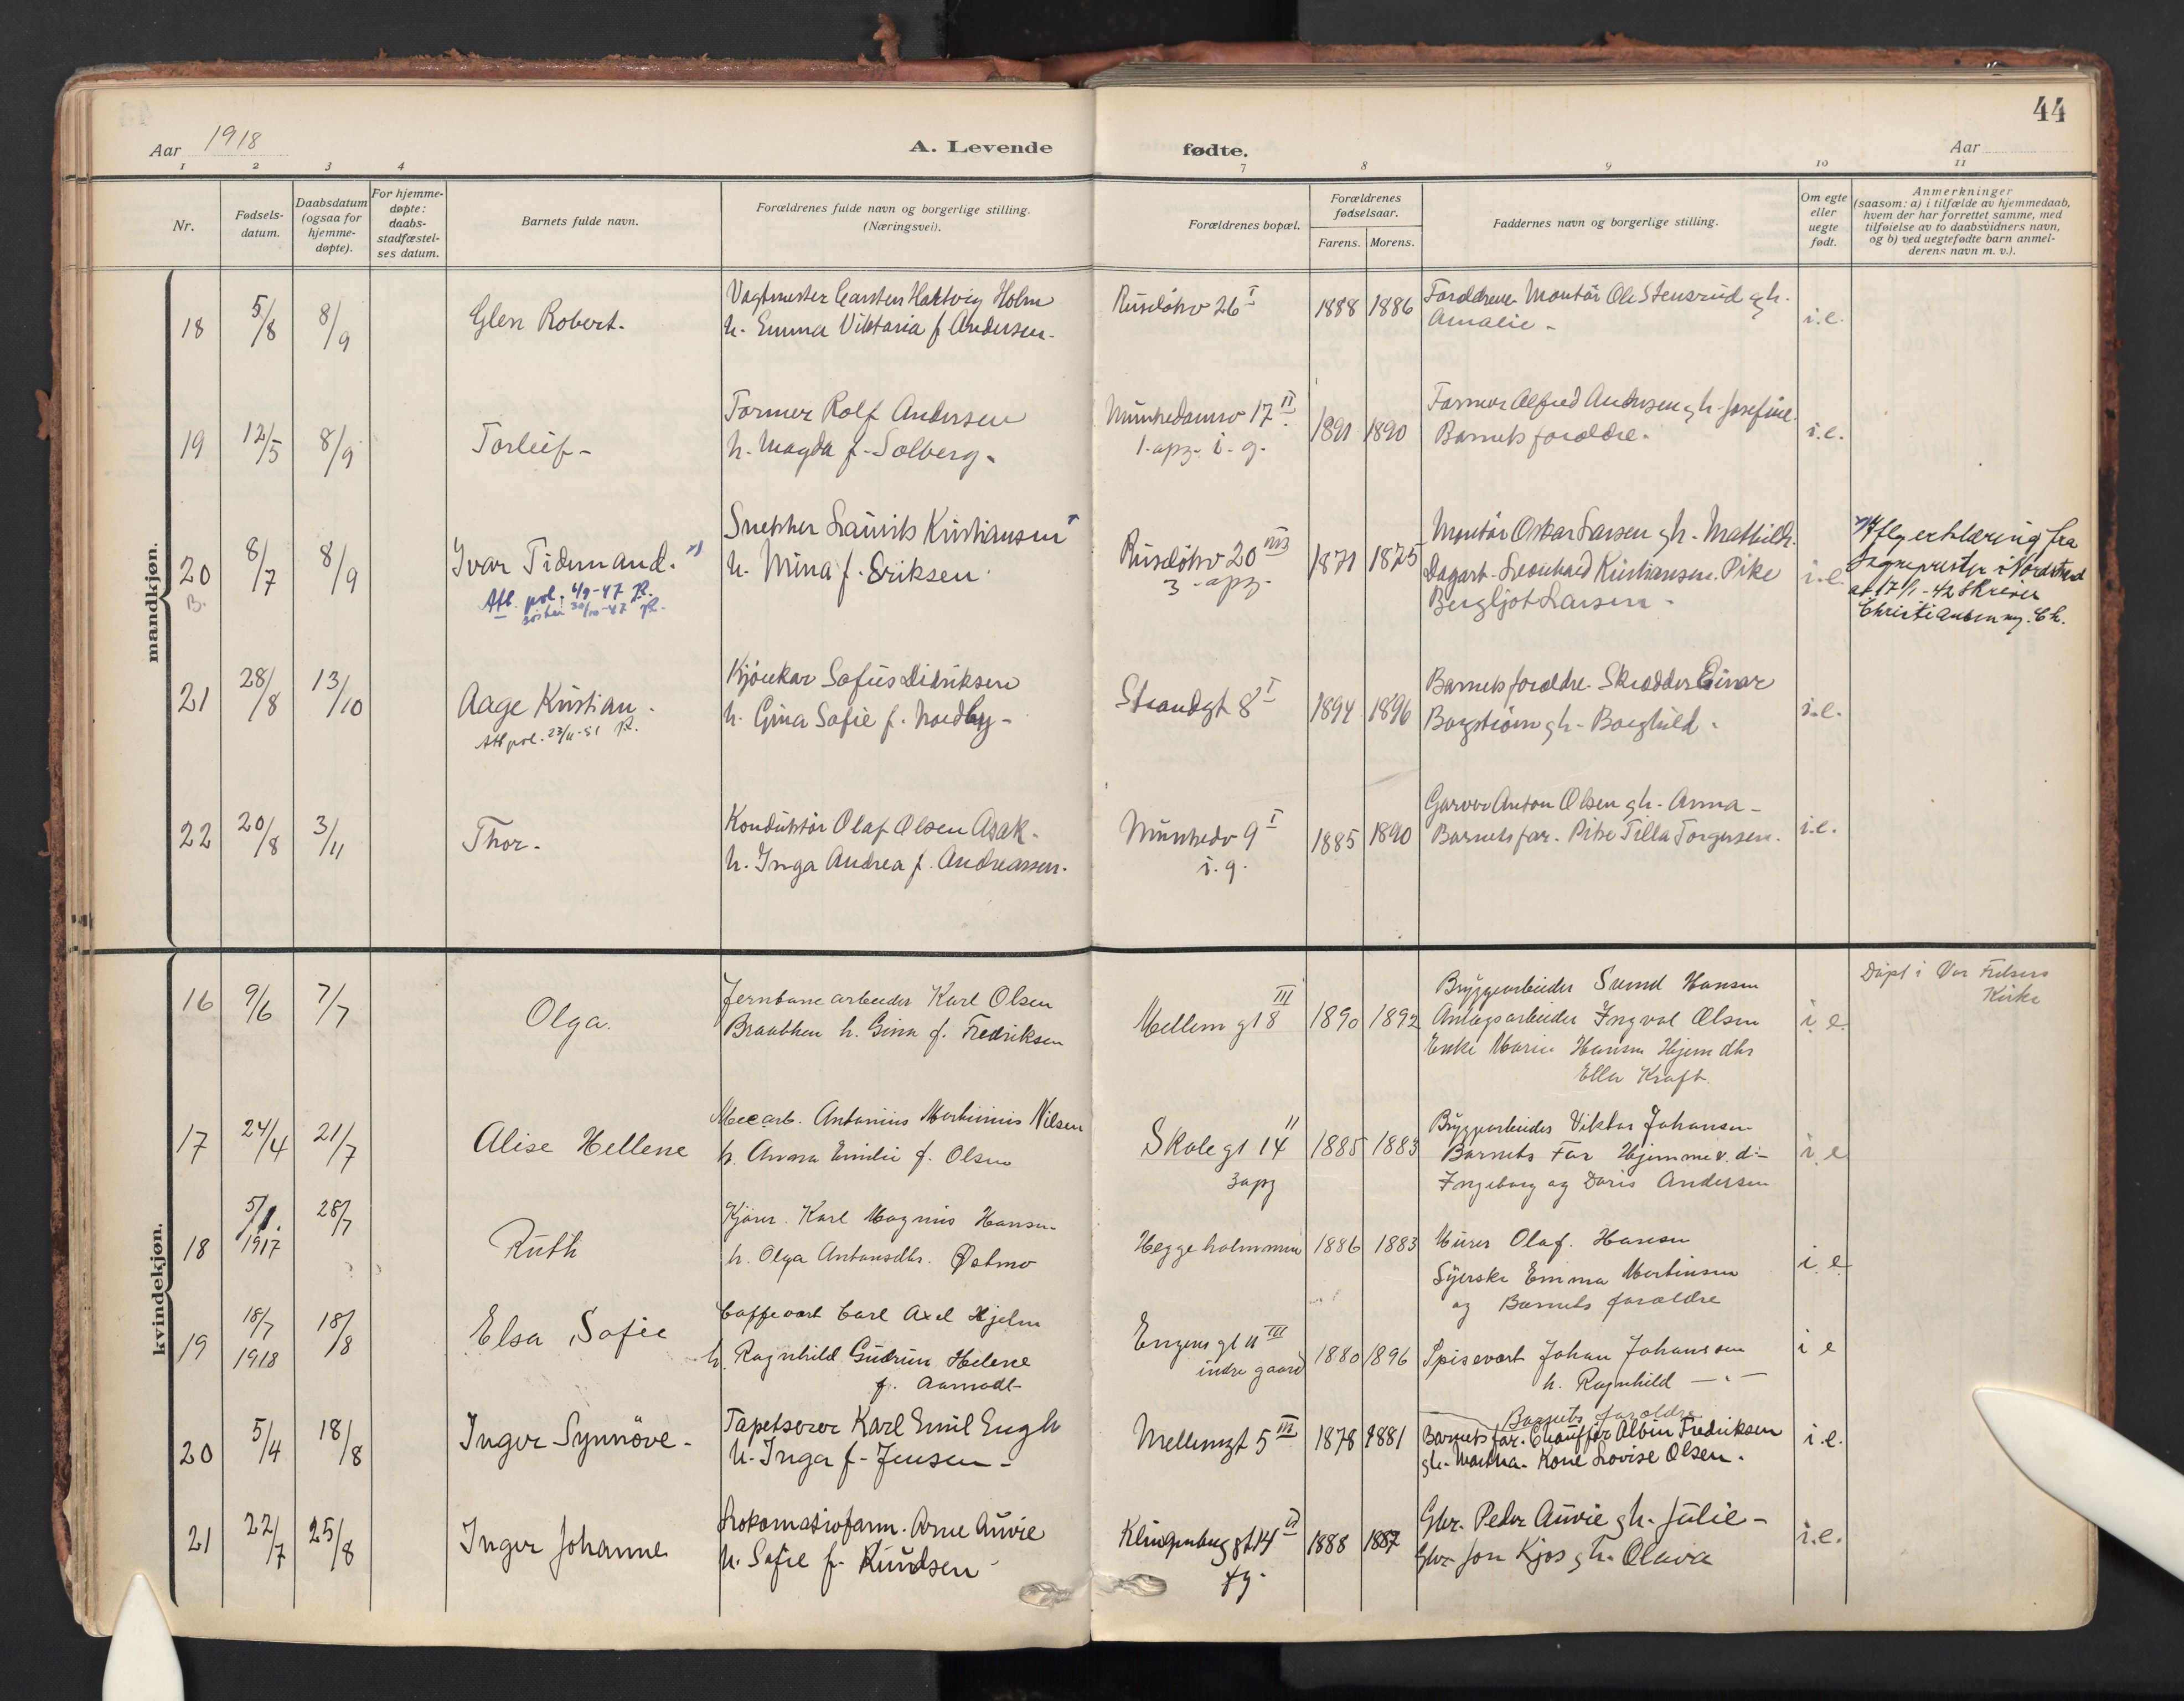 44
Aar 1918
A. Levende fødte.
Aar
1 2 3 4 7 8 9 10 11
Nr.
Fødsels-
datum.
Daabsdatum
(ogsaa for
hjemme-
døpte).
For hjemme-
døpte:
daabs-
stadfæstel-
ses datum.
Barnets fulde navn.
Forældrenes fulde navn og borgerlige stilling.
(Næringsvei).
Forældrenes bopæl.
Forældrenes
fødselsaar.
Farens. Morens.
Faddernes navn og borgerlige stilling.
Om egte
eller
uegte
født.
Anmerkninger
(saasom: a) i tilfælde av hjemmedaab,
hvem der har forrettet samme, med
tilføielse av to daabsvidners navn,
og b) ved uegtefødte barn anmel-
derens navn m. v.).
mandkjøn.
18 5/8 8/9 Glen Robert.
Vagtmester Carsten Hartvig Holm
h. Emma Viktoria f. Andersen.
Ruseløkv 26 I
1888 1886
Forældrene. Montør Ole Stensrud gh.
Amalie -
i.e.
19 12/5 8/9 Torleif -
Former Rolf Andersen
h. Magda f. Solberg.
Munkedamsv 17 II
1. opg. i. g.
1891 1890
Former Alfred Andersen gh. Josefine.
Barnets forældre.
i.e.
20 8/7 8/9 Ivar Tidemand.
B.
Att. pol. 4/9-47
30/10-47
Snekker Laurits Kristiansen
h. Mina f. Eriksen.
Ruseløkv 20
3 - opg.
1871 1875
Montør Oskar Larsen gh. Mathilde.
Dagarb. Leonhard Kristiansen. Pike
Bergljot Larsen -
i.e.
Iflg erklæring fra
Sognepresten i Nordstrand
av 17/1-42 skrives
Christiansen m. Ch.
21 28/8 13/10 Aage Kristian.
Att pol. 23/11-51
Kjørekar Sofus Didriksen
h. Gina Sofie f. Nordby -
Strandgt 8 I
1894 1896
Barnets forældre. Skrædder Einar
Borgstrøm gh. Borghild.
i.e.
22 20/8 3/11 Thor.
Konduktør Olaf Olsen Asak.
h. Inga Andrea f. Andreassen.
Munkedv 9 I
i. g.
1885 1890
Garver Anton Olsen gh. Anna -
Barnets far. Pike Tilla Torgersen.
i.e.
kvindekjøn.
16 9/6 7/7 Olga.
Jernbanearbeider Karl Olsen
Braathen h. Gina f. Fredriksen
Mellemgt 8 III
1890 1892
Bryggearbeider Svend Hansen
Anlægsarbeider Ingval Olsen
Enke Marie Hansen Hjem dtr
Ella Kraft.
i e.
Døpt i Vor Frelsers
Kirke
17 24/4 21/7 Alise Hellene
Mecarb. Antonius Martinius Nilsen
h. Anna Emilie f. Olsen
Skolegt 14 II
3 opg
1885 1883
Bryggearbeider Viktor Johansen
Barnets Far Hjemmev. d:-
Ingeborg og Doris Andersen
i e
18 5/1. 1917 28/7 Ruth
Kjører. Karl Magnus Hansen
h. Olga Antonsdtr. Østmo
Heggeholmen
1886 1883
Murer Olaf. Hansen
Syerske Emma Martinsen
og Barnets forældre
i e
19 18/7 1918 18/8 Elsa Sofie
Caffevært Carl Axel Hjelm
h. Ragnhild Gudrun Helene
f. Aamodt
Engensgt 11 III
indre gaard
1880 1896
Spisevært Johan Johansson
h. Ragnhild — " —
Barnets forældre
i e
20 5/4 18/8 Inger Synnöve -
Tapetserer Karl Emil Engh
h. Inga f. Jensen -
Mellemgt 5 III
1878 1881
Barnets far. Chauffør Albin Fredriksen
gh. Martha. Kone Lovise Olsen.
i.e.
21 22/7 25/8 Inger Johanne
Lokomotivform. Arne Auvie
h. Sofie f. Knudsen
Klingenberggt 4
fg.
1888 1887
Gbr. Peder Auvie gh. Julie -
Gbr. Jon Kjos gh. Olava
i.e.